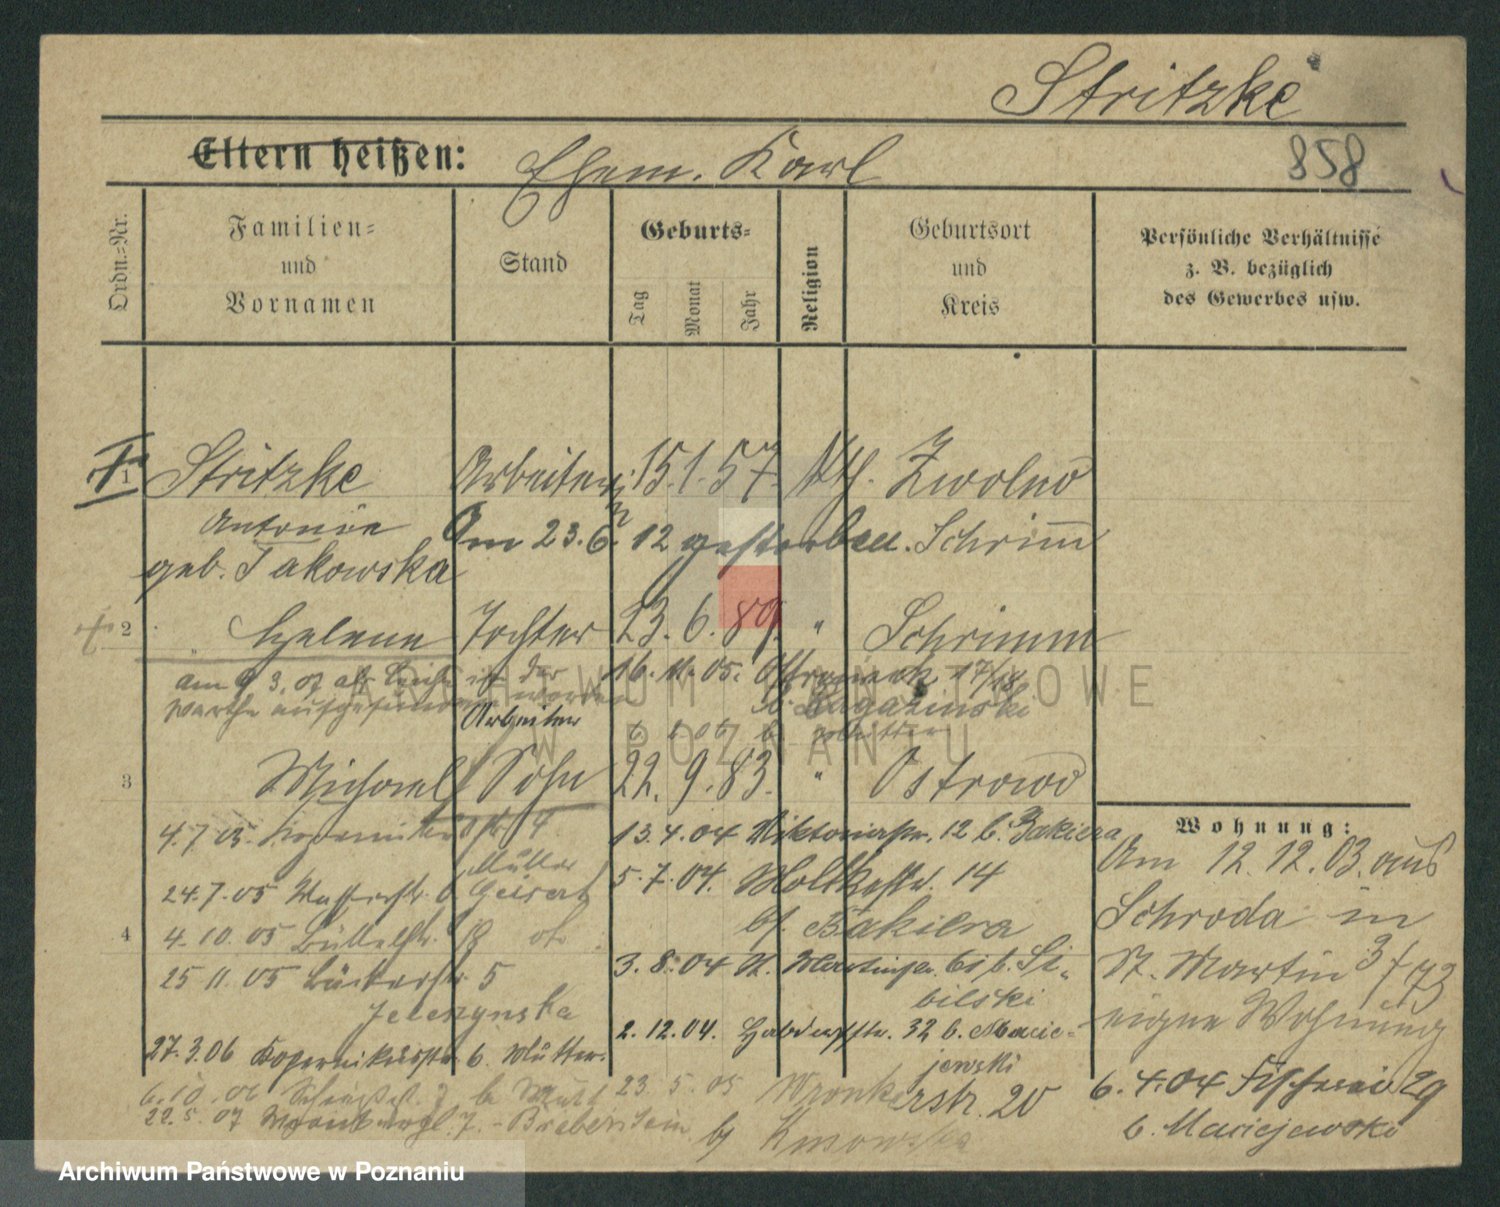 Stritzke
Eltern heißen: Ehem. Karl
858
Ordn.=Nr.
Familien=
und
Vornamen
Stand
Geburts=
Tag
Monat
Jahr
Religion
Geburtsort
und
Kreis
Persönliche Verhältnisse
z. B. bezüglich
des Gewerbes usw.
1 Stritzke Arbeiterin 15. 1. 57. kth. Zwolno
Antonie Am 23. 6. 12 gestorben. Schrimm
geb. Jakowska
2 " Helene Tochter 23. 6. 89. " Schrimm
am 9. 3. 07 als Leiche in der 16. 11. 05. 17/18
Warthe aufgefunden worden b. Ragazinski
Arbeiter
3 Michael Sohn 22. 9. 83. " Ostrowo
4. 7. 05. 13. 4. 04 Viktoriastr. 12 b. Bakiera
Müller
24. 7. 05 Wasserstr. Geisert 5. 7. 04. Moltkestr. 14
bf. Bakiera
4 4. 10. 05 Büttelstr. 18
25 11. 05 Bäckerstr. 5 3. 8. 04 St. Martinstr. 61 b. Si-
bilski
Jeleszynska
2. 12. 04. 32 b. Macie-
jewski
27. 3. 06 Kopernikusstr. 6. Mutter.
6. 10. 06 b. Mutt 23 5. 05 Wronkerstr. 20
22. 5. 07 7. - Bieberstein
Wohnung:
Am 12. 12. 03. aus
Schroda in
St. Martin 3/73
eigne Wohnung
6. 4. 04 Fischerei 29
b. Maciejewski
ARCHIWUM PAŃSTWOWE
W POZNANIU
Archiwum Państwowe w Poznaniu